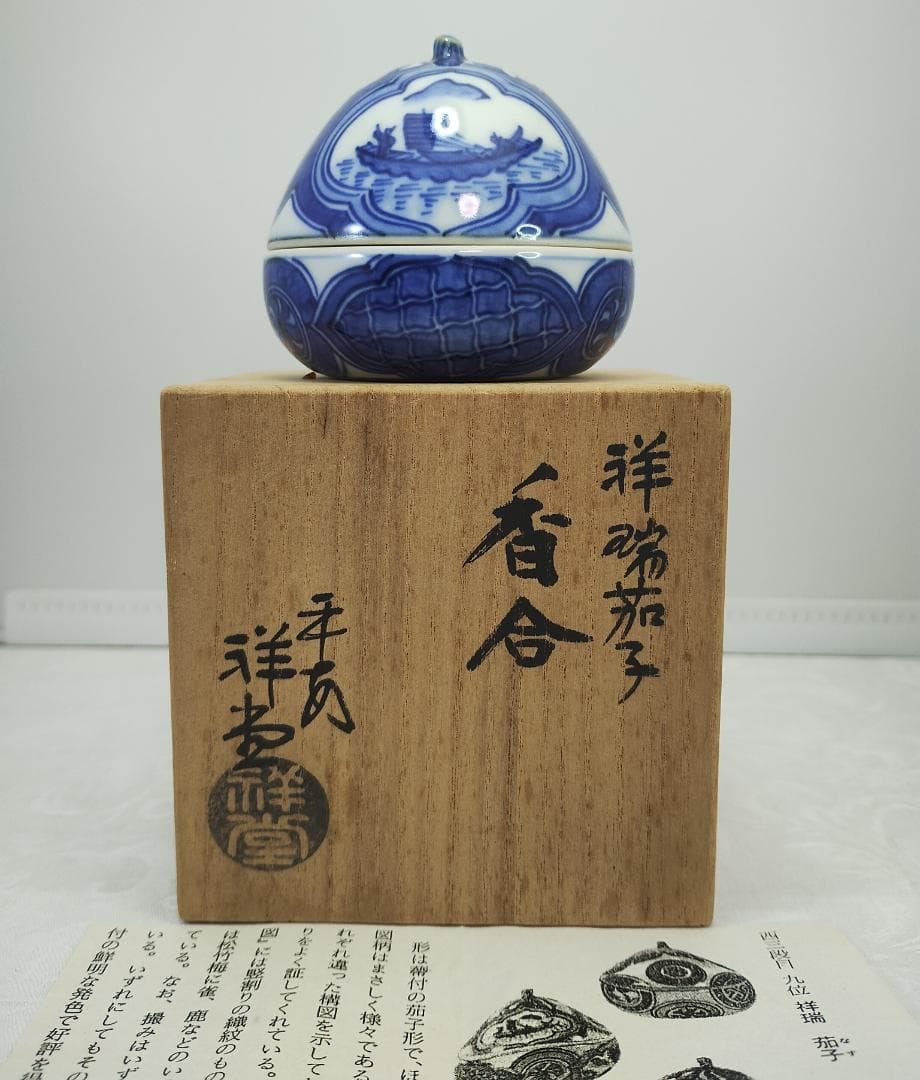 祥瑞茄子
香合
平安
祥堂
祥堂
西三段目 九位 祥瑞 茄子
なす
形は蔕付の茄子形で、ほ
図柄はまさしく様々である
れぞれ違った構図を示して
りをよく証してくれている。
図』には竪割りの織紋のもの
は松竹梅に雀、鹿などのい
ている。なお、撮みはいず
いる。いずれにしてもその
付の鮮明な発色で好評を得